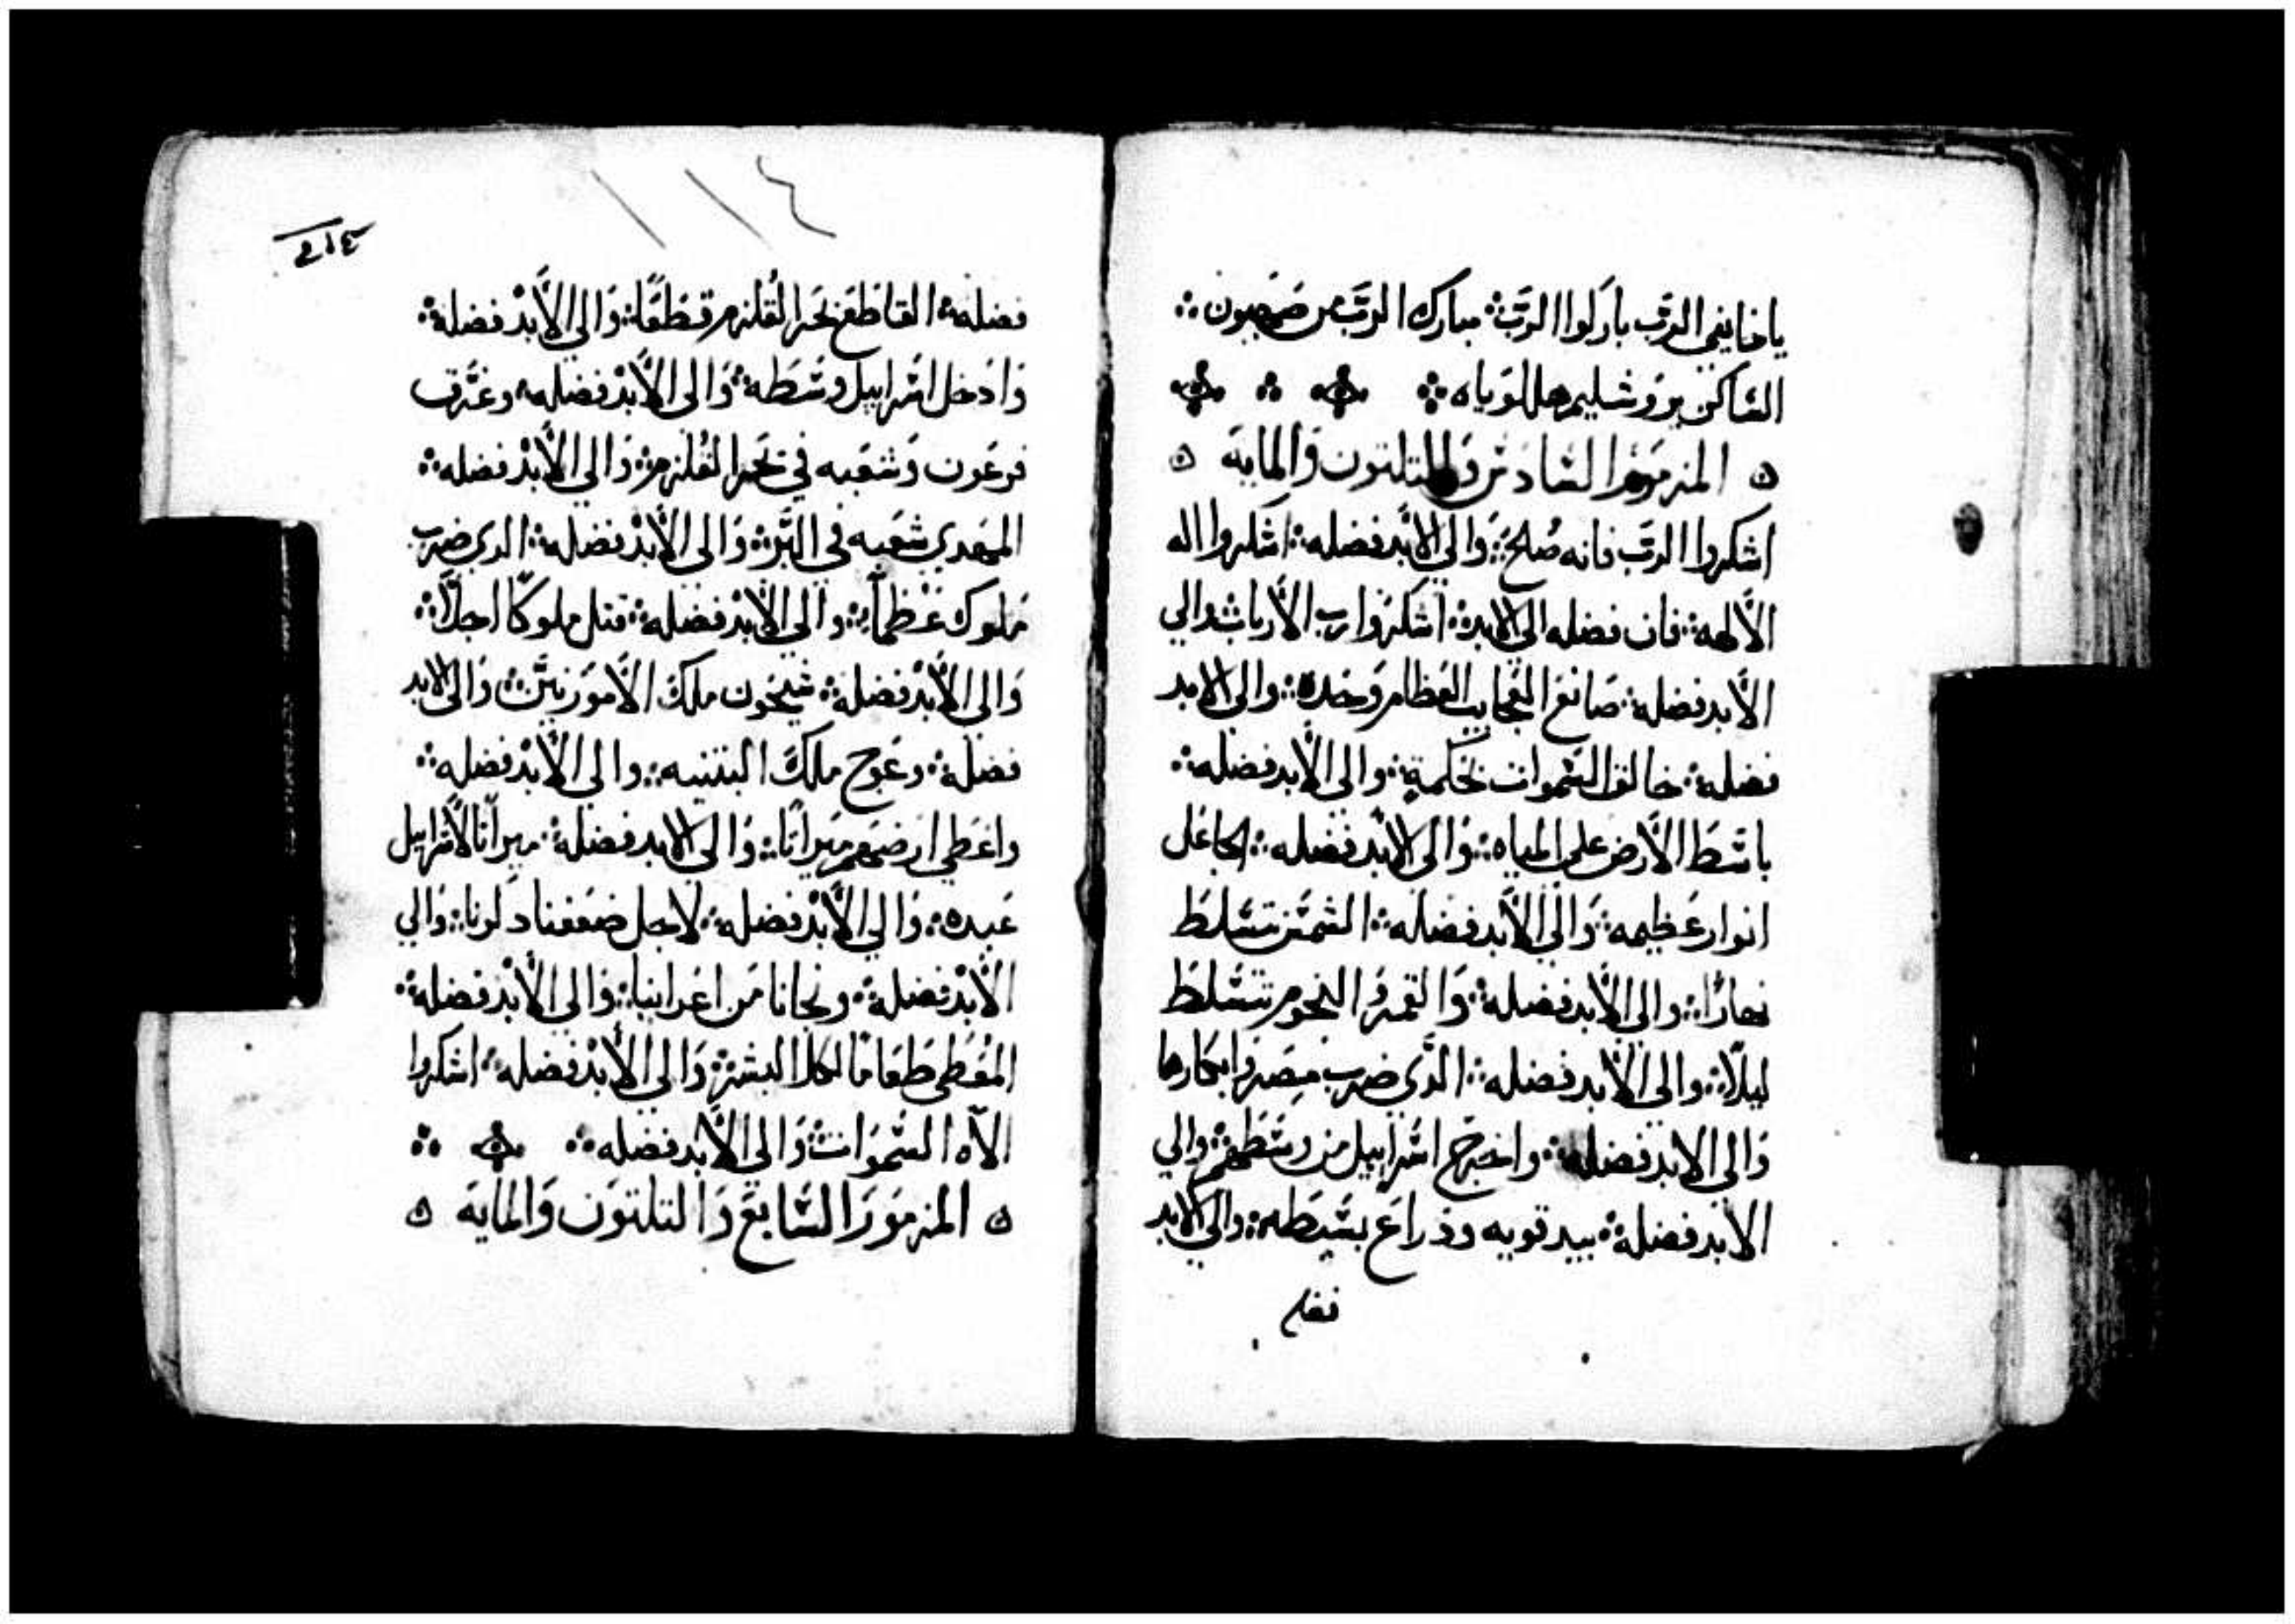 ياخايفي الرب باركوا الرب؛ مبارك الرب من صهيون؛
الساكن يروشليم هللوياه
المزمور السادس والتلتون والمايه
اشكروا الرب فانه صلح؛ والي الابد فضله؛ اشكروا اله
الالهه؛ فان فضله الي الابد؛ اشكروا رب الارباب؛ والي
الابد فضله؛ صانع العجايب العظام وحده؛ والي الابد
فضله؛ خالق السموات بحكمة؛ والي الابد فضله؛
باسط الارض علي المياه؛ والي الابد فضله؛ الجاعل
انوار عظيمه؛ والي الابد فضله؛ الشمس تتسلط
نهارًا؛ والي الابد فضله؛ والقمر والنجوم تتسلط
ليلًا؛ والي الابد فضله؛ الذي ضرب مصر وابكارها
والي الابد فضله؛ واخرج اسراييل من وسطهم؛ والي
الابد فضله؛ بيد قويه وذراع بسيطه؛ والي الابد
فضله
١١٤
فضله؛ القاطع بحر القلزم قطعًا؛ والي الابد فضله؛
وادخل اسراييل وسطه؛ والي الابد فضله؛ وغرق
فرعون وشعبه في بحر القلزم؛ والي الابد فضله؛
المهدي شعبه في البر؛ والي الابد فضله؛ الدي ضرب
ملوك عظمًا؛ والي الابد فضله؛ قتل ملوكًا اجلًا؛
والي الابد فضله؛ سيحون ملك الامورنيين؛ والي الابد
فضله؛ وعوج ملك البتنيه؛ والي الابد فضله؛
واعطي ارضهم ميراتًا؛ والي الابد فضله؛ ميراتًا لاسراييل
عبده؛ والي الابد فضله؛ لاجل ضعفنا دكرنا؛ والي
الابد فضله؛ ونجانا من اعداينا؛ والي الابد فضله؛
المعطي طعامًا لكل البشر؛ والي الابد فضله؛ اشكروا
الاه السموات؛ والي الابد فضله؛
المزمور السابع والتلتون والمايه